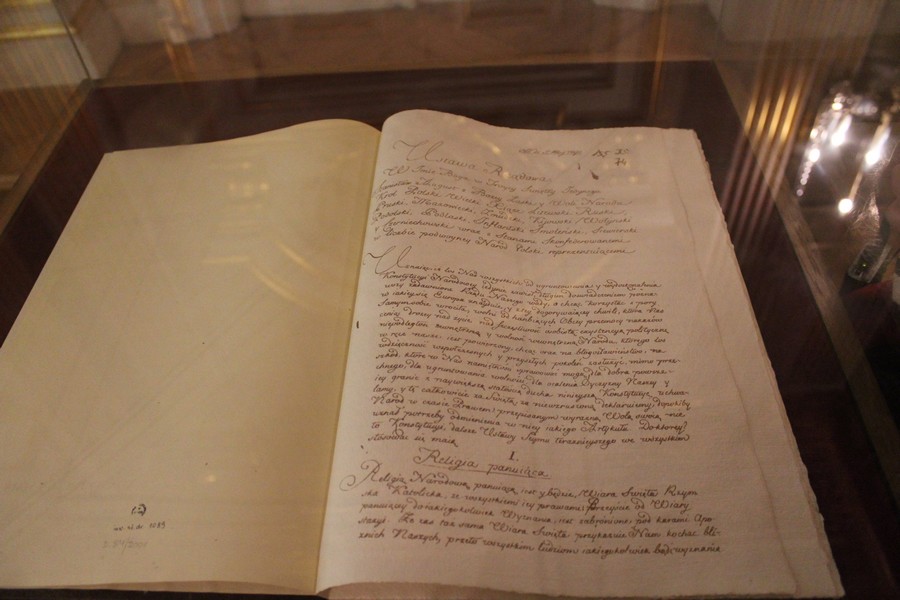 Ustawa Rządowa.
W Imie Boga, w Troycy Swiętey Jedynego.
Stanisław August z Bożey Łaski y Woli Narodu
Krol Polski, Wielki Xiąże Litewski, Ruski,
Pruski, Mazowiecki, Zmudzki, Kijowski, Wołynski,
Podolski, Podlaski, Inflantski Smolenski, Siewierski
y Czerniechowski, wraz z Stanami Skonfederowanemi
w liczbie podwoyney Narod Polski reprezentuiącemi
Uznaiąc iż los Nas wszystkich od ugruntowania y wydoskonalenia
Konstytucyi Narodowey iedynie zawisł, długim doswiadczeniem poznaw-
szy zadawnione Rządu Naszego wady, a chcąc korzystać z pory
w iakiey się Europa znayduie, y z tey dogorywaiącey chwili, ktora Nas
Samym sobie wrociła, wolni od hańbiących Obcey przemocy nakazow
ceniąc drożey nad życie, nad szczęśliwosć osobistą exystencyą polityczną
niepodległosć zewnętrzną y wolnosć wewnętrzną Narodu, ktorego los
w ręce nasze iest powierzony, chcąc oraz na błogosławieństwo, na
wdzięcznosć wspołczesnych y przyszłych pokoleń zasłużyć, mimo prze-
szkod, ktore w Nas namiętnosci sprawować mogą, dla dobra powsze-
chnego, dla ugruntowania wolnosci, dla ocalenia Oyczyzny Naszey y
iey granic z naywiększą stałoscią ducha ninieyszą Konstytucyę uchwa-
lamy, y tę całkowicie za swiętą, za niewzruszoną deklaruiemy, dopokiby
Narod w czasie Prawem przepisanym wyrazną Wolą swoią nie
uznał potrzeby odmienienia w niey iakiego Artykułu. Do ktorey
to Konstytucyi dalsze Ustawy Seymu teraznieyszego we wszystkim
stosować się maią.
I.
Religia panuiąca.
Religią Narodową panuiącą iest y będzie Wiara Swięta Rzym-
ska Katolicka, ze wszystkiemi iey prawami. Przeyście od Wiary
panuiącey do iakiegokolwiek Wyznania, iest zabronione pod karami Apo-
stazyi. Ze zas ta sama Wiara Swięta przykazuie Nam kochać bli-
źnich Naszych, przeto wszystkim ludziom iakiegokolwiek bądź wyznania